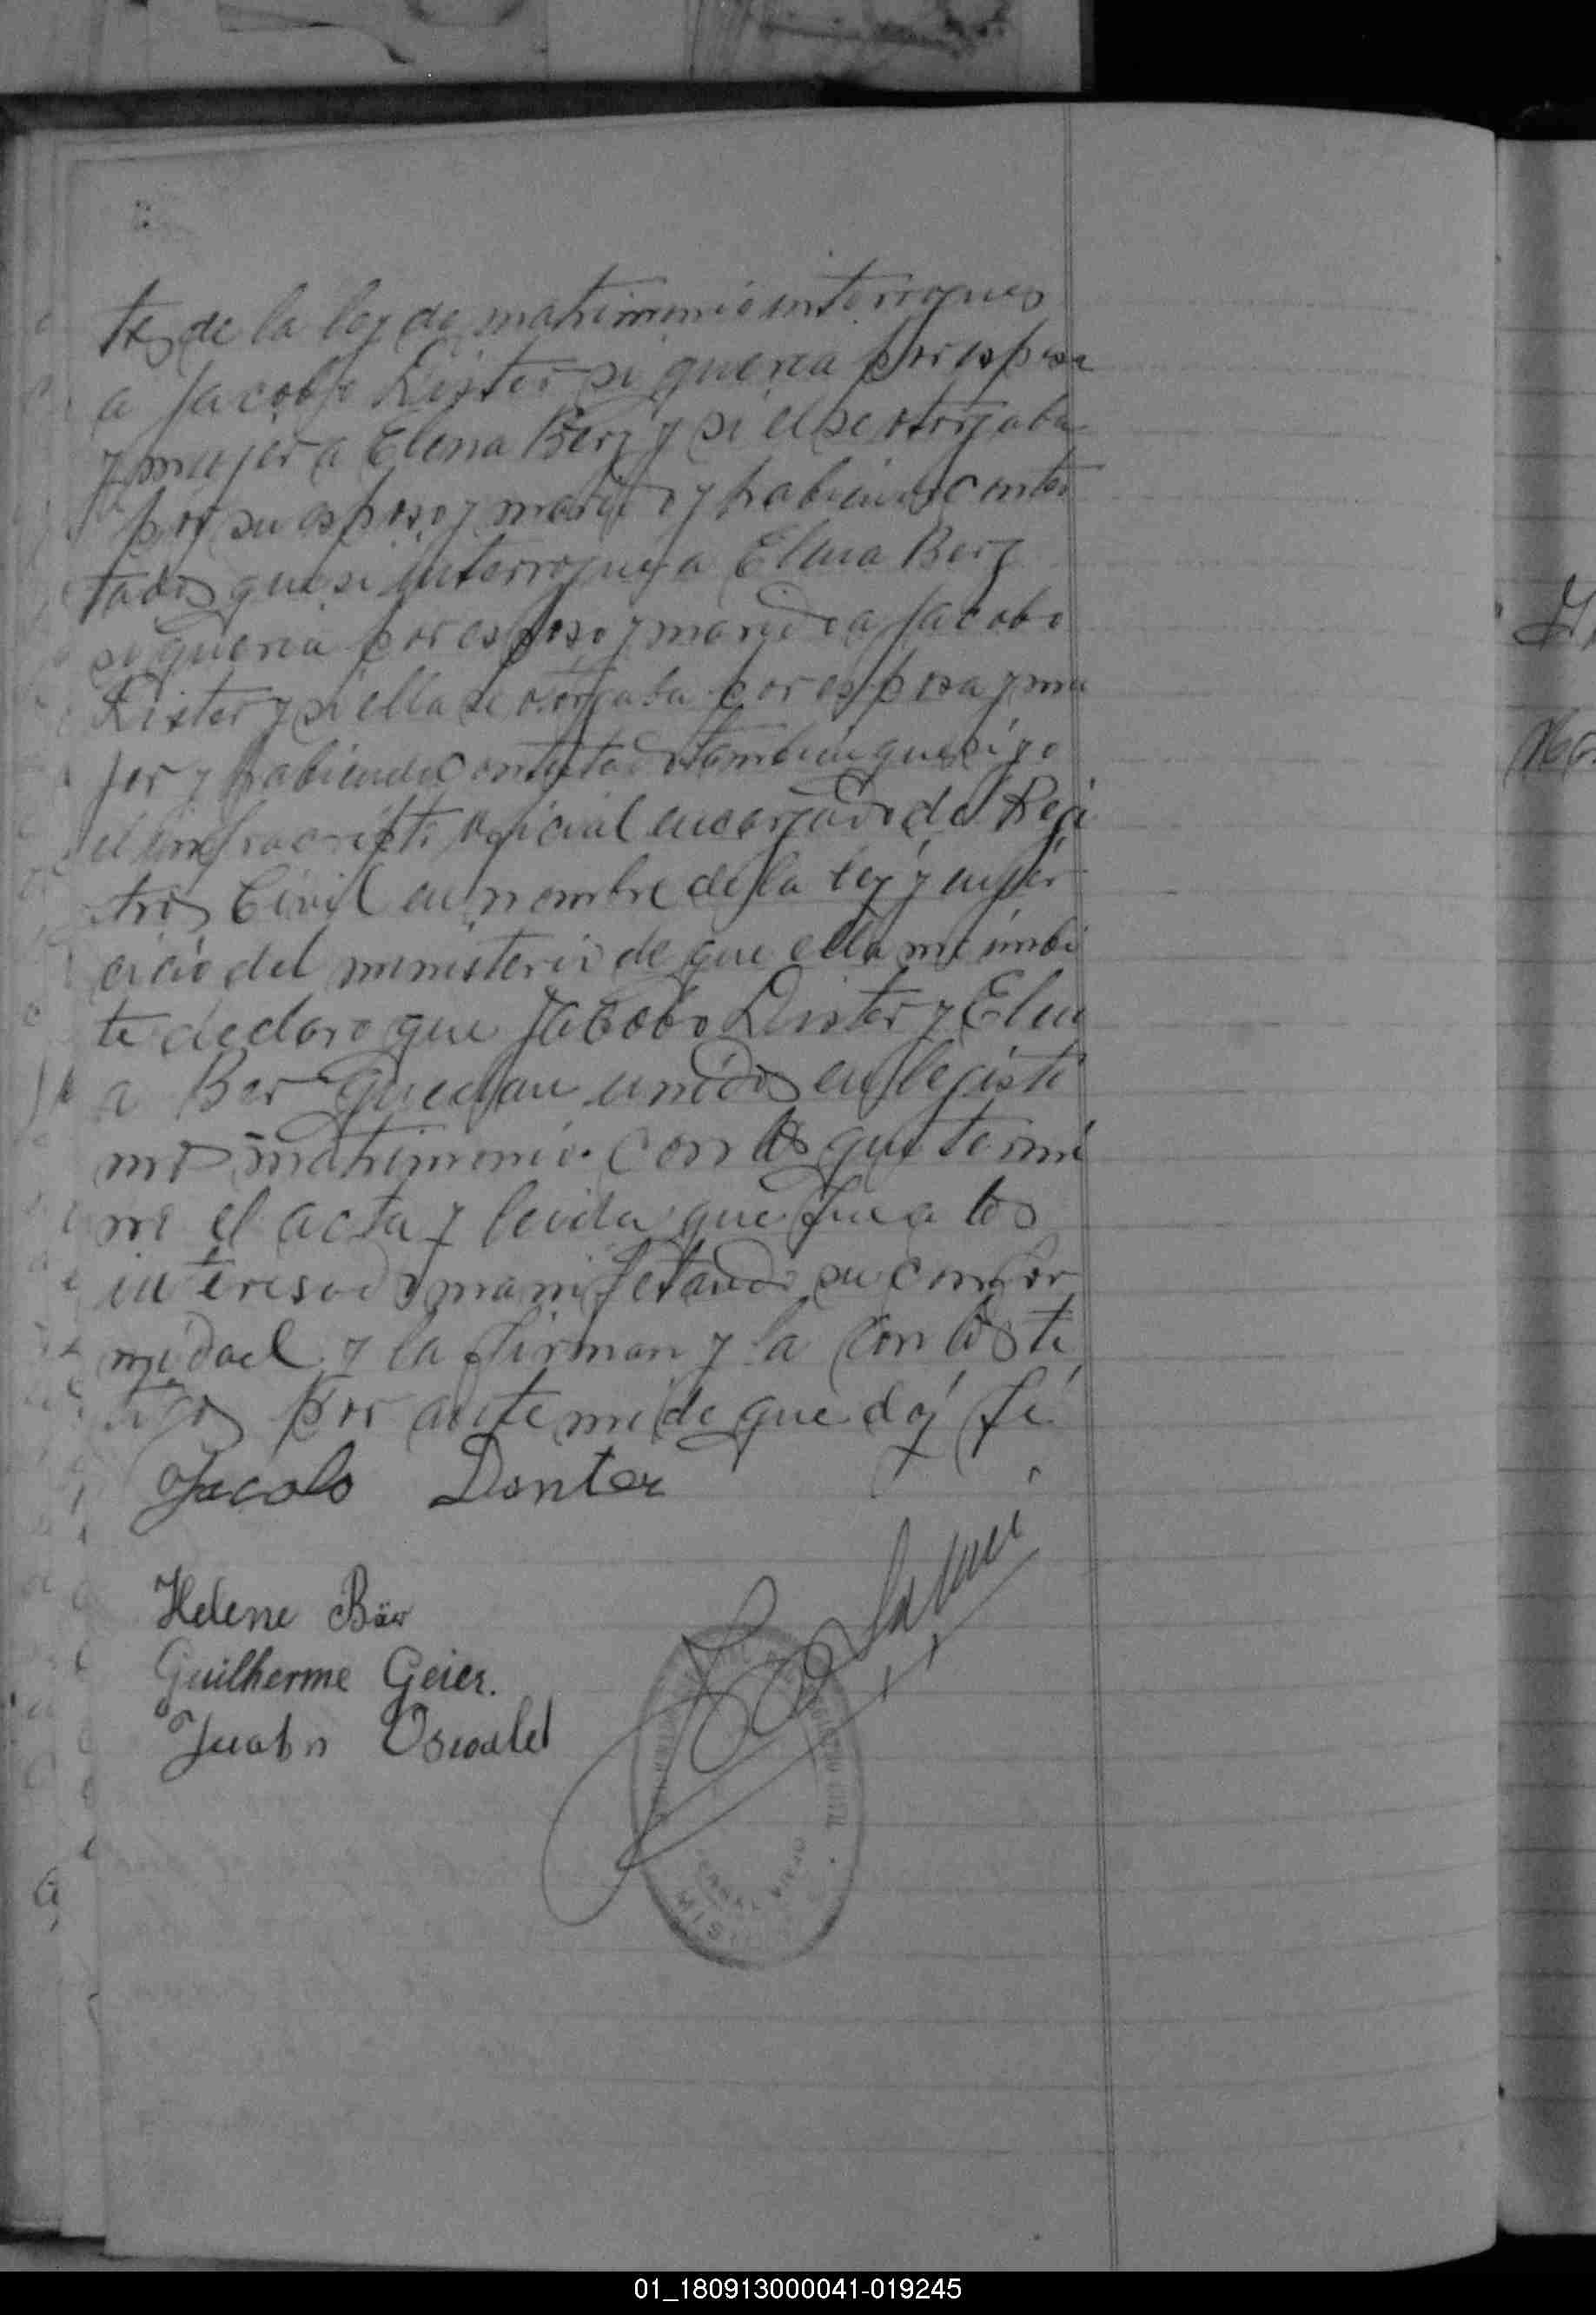 tes de la ley de matrimonio interrogues
a Jacobo Dister si queria por esposa
y mujer a Elena Berg y si el se otorgaba
por su esposo y marido y habiendo contes
tados que si interrogue a Elena Berg
si queria por esposo y marido a Jacobo
Dister y si ella se otorgaba por esposa y mu
jer y habiendo contestado tambien que si yo
el infracripto oficial encargado del Reji
tros Civil en nombre de la ley y en ejer
cicio del ministerio de que ella me imbi
te declaro que Jacobo Dister y Elen
a Ber quedan unidos en lejisti
mo matrimonio. con los que termi
na el acta y leida que fue a los
interesados manifestando su confor
midad y la firman y la con los te
tigos por ante mi de que doy fé
Jacobo Denter
Helene Bär
Guilherme Geier.
Jacobo Oswald
REGISTRO CIVIL
01_180913000041-019245